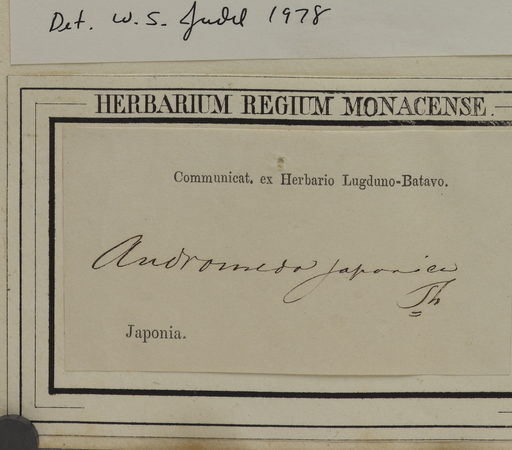 Det. W. S. Judd 1978
HERBARIUM REGIUM MONACENSE.
Communicat. ex Herbario Lugduno-Batavo.
Andromeda japonica
Th
Japonia.